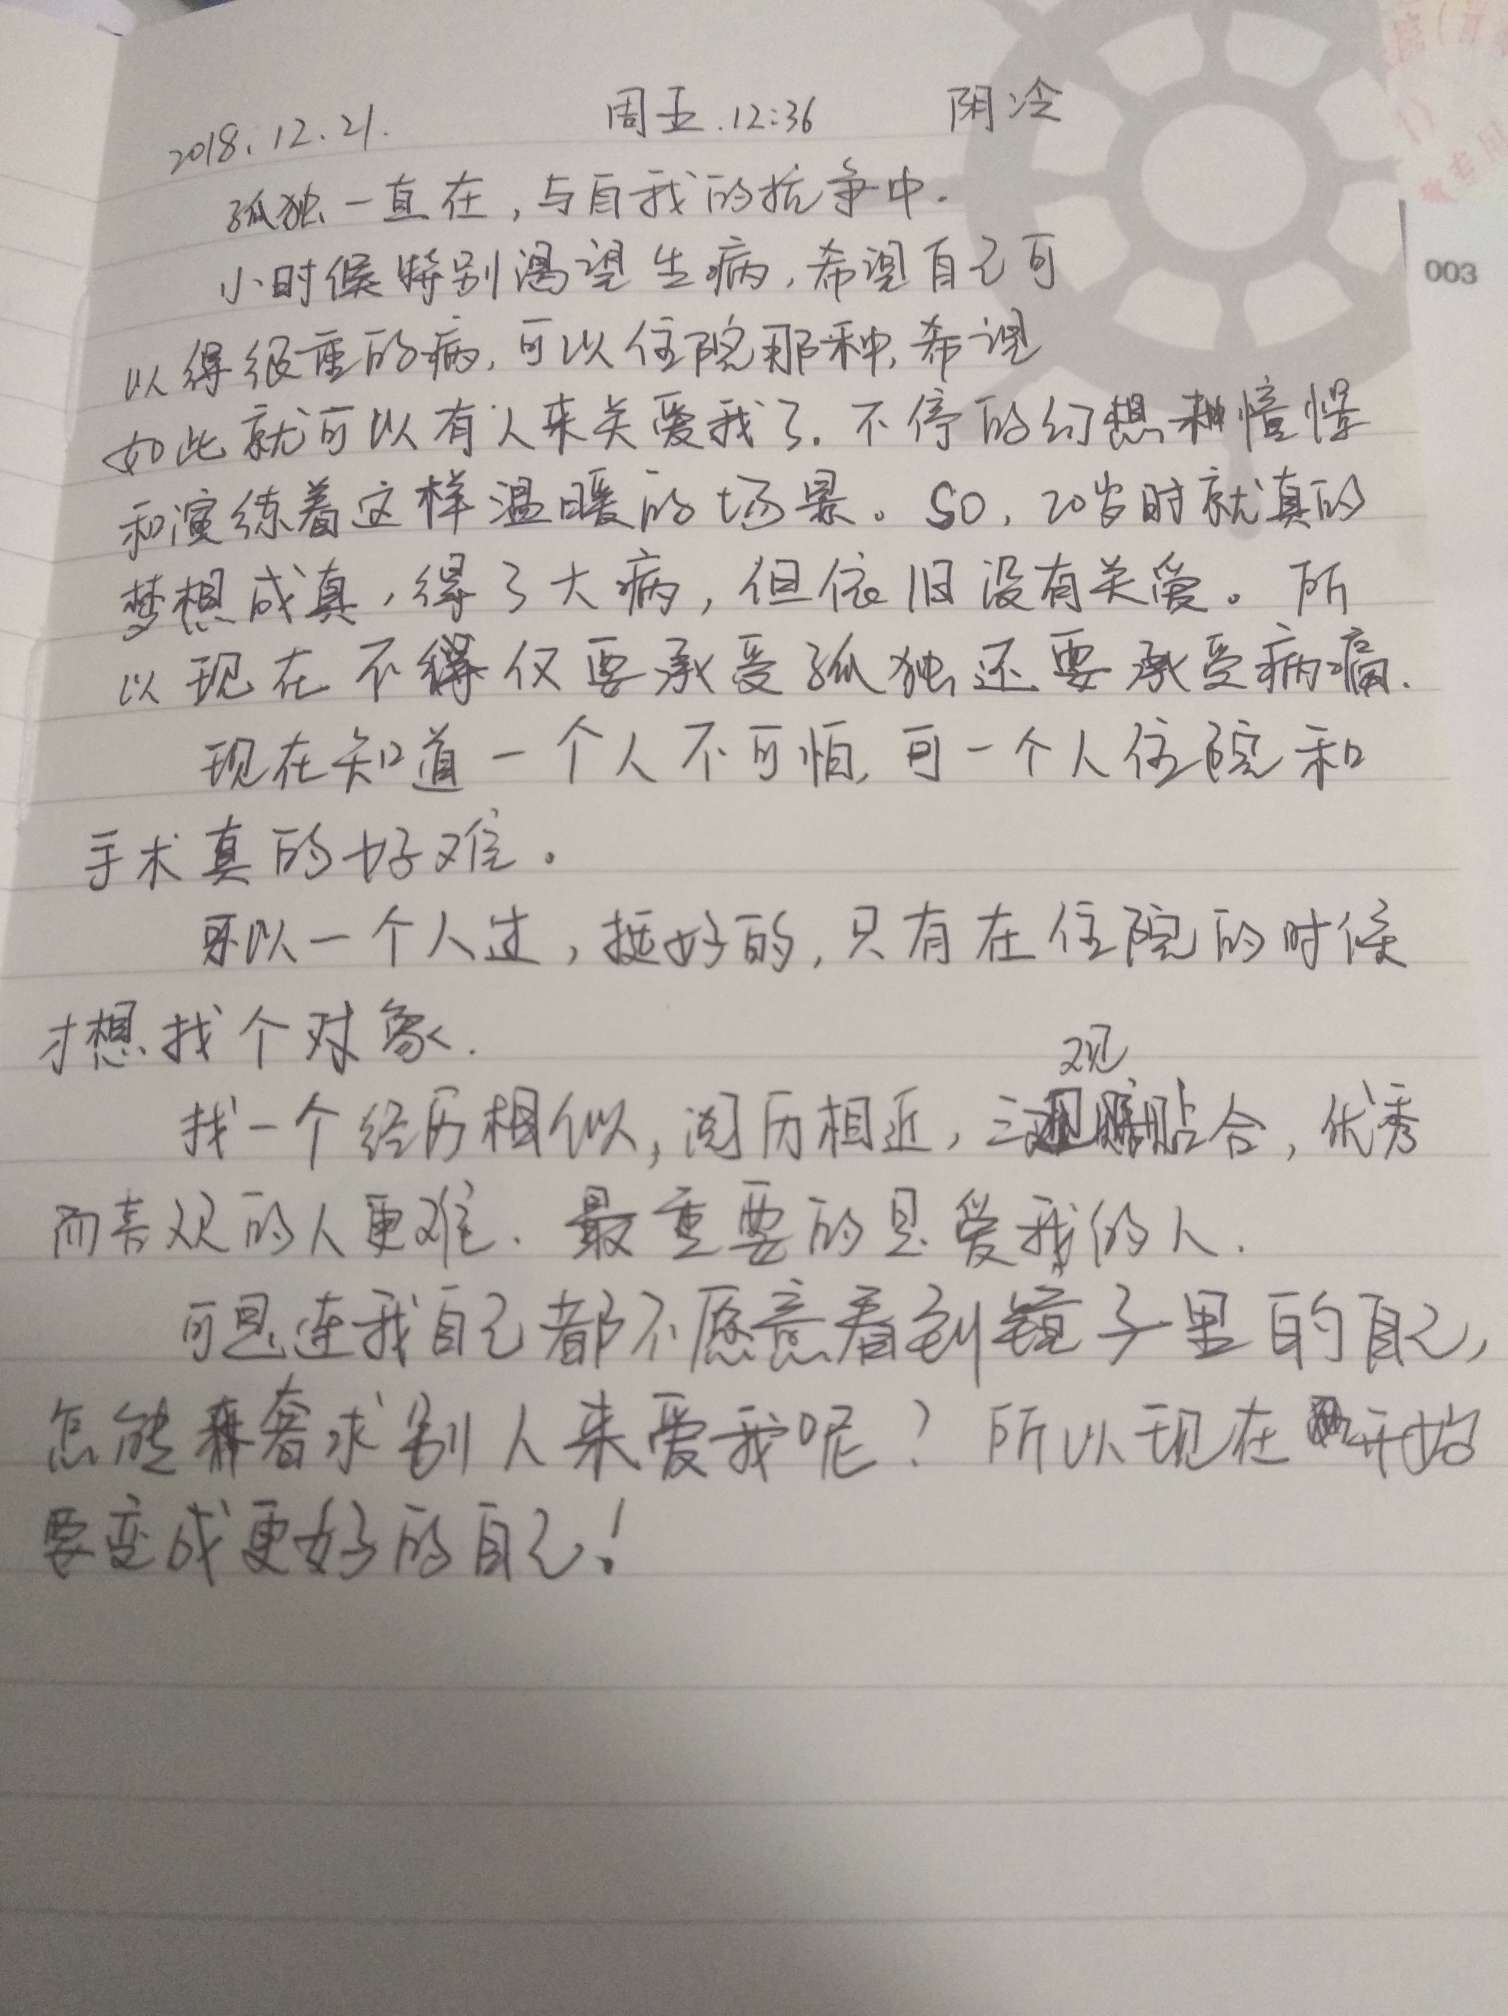 2018.12.21. 周五.12:36 阴冷
孤独一直在,与自我的抗争中.
003
小时候特别渴望生病,希望自己可
以得很重的病,可以住院那种,希望
如此就可以有人来关爱我了.不停的幻想憧憬
和演练着这样温暖的场景。SO,20岁时就真的
梦想成真,得了大病,但依旧没有关爱。所
以现在不仅要承受孤独还要承受病痛.
现在知道一个人不可怕,可一个人住院和
手术真的好难。
可以一个人过,挺好的,只有在住院的时候
才想找个对象.
找一个经历相似,阅历相近,三观贴合,优秀
而客观的人更难.最重要的是爱我的人.
可是连我自己都不愿意看到镜子里的自己,
怎能奢求别人来爱我呢?所以现在开始
要变成更好的自己!